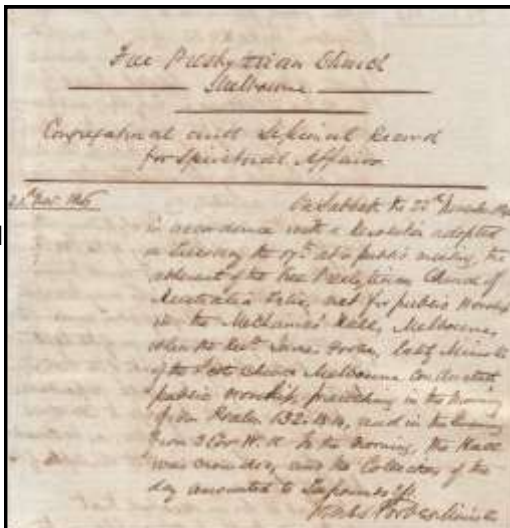 Free Presbyterian Church
Melbourne
Congregational and Sessional Record
for Spiritual Affairs
Nov. 1846
On Sabbath the 22nd November
in accordance with a Resolution adopted
on Tuesday the 17th at a public meeting, the
adherents of the Free Presbyterian Church of
Australia Felix, met for public Worship
in the Mechanics' Hall, Melbourne,
when the Revd. James Forbes, lately Minister
of the Scots Church Melbourne conducted
public worship, preaching in the morning
from Psalm 132. and in the Evening
from 2 Cor In the morning, the Hall
was crowded, and the Collection of the
day amounted to
James Forbes Minister